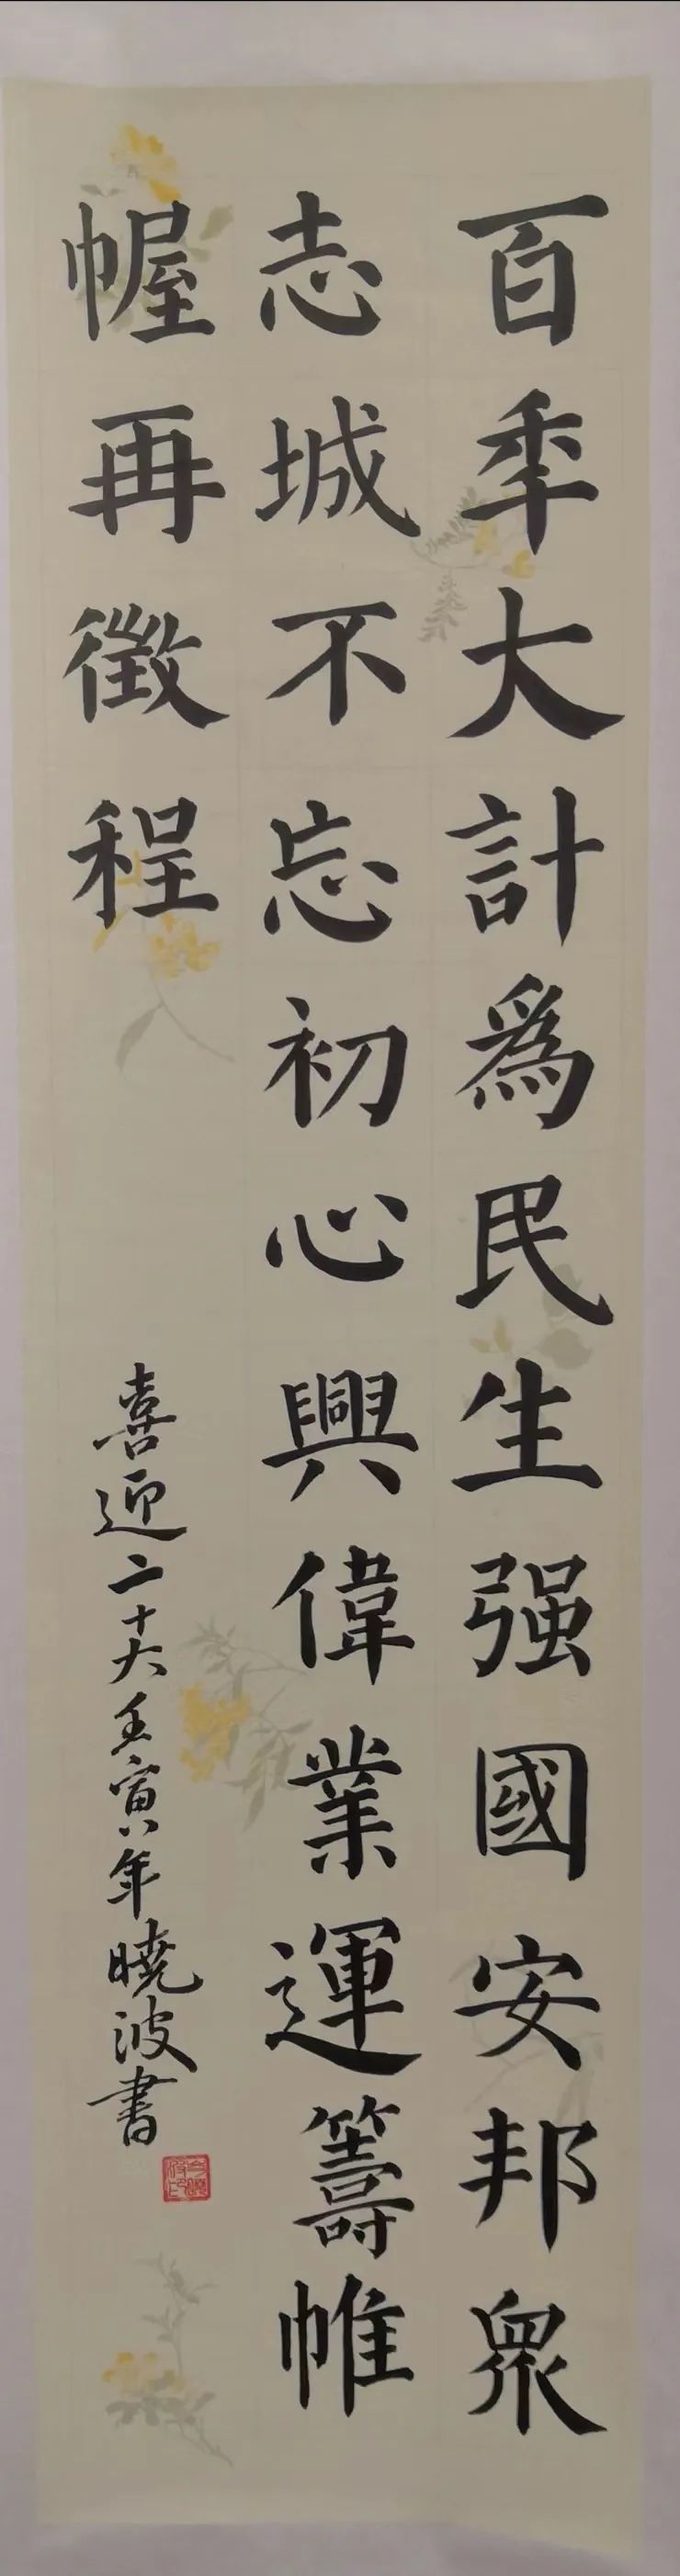 百季大計為民生强國安邦眾
志城不忘初心興偉業運籌帷
幄再徵程
喜迎二十大壬寅年曉波書